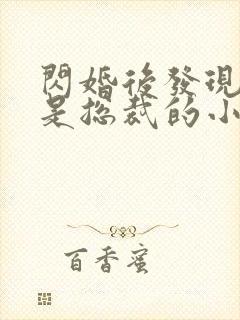 閃婚後發現
是總裁的小
百香蜜